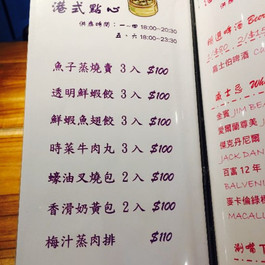 港式點心
供應時間：一~四 18:00~20:30
五、六 18:00~23:30
魚子蒸燒賣 3入 $100
透明鮮蝦餃 3入 $100
鮮蝦魚翅餃 3入 $100
時菜牛肉丸 3入 $100
蠔油叉燒包 2入 $100
香滑奶黃包 2入 $100
梅汁蒸肉排 $110
啤酒 Beer
富士伯啤酒
威士忌 Wh
金賓 JIM BEA
愛爾蘭尊美
傑克丹尼爾
JACK DAN
百富12年
BALVENI
麥卡倫
MACALL
涮嘴